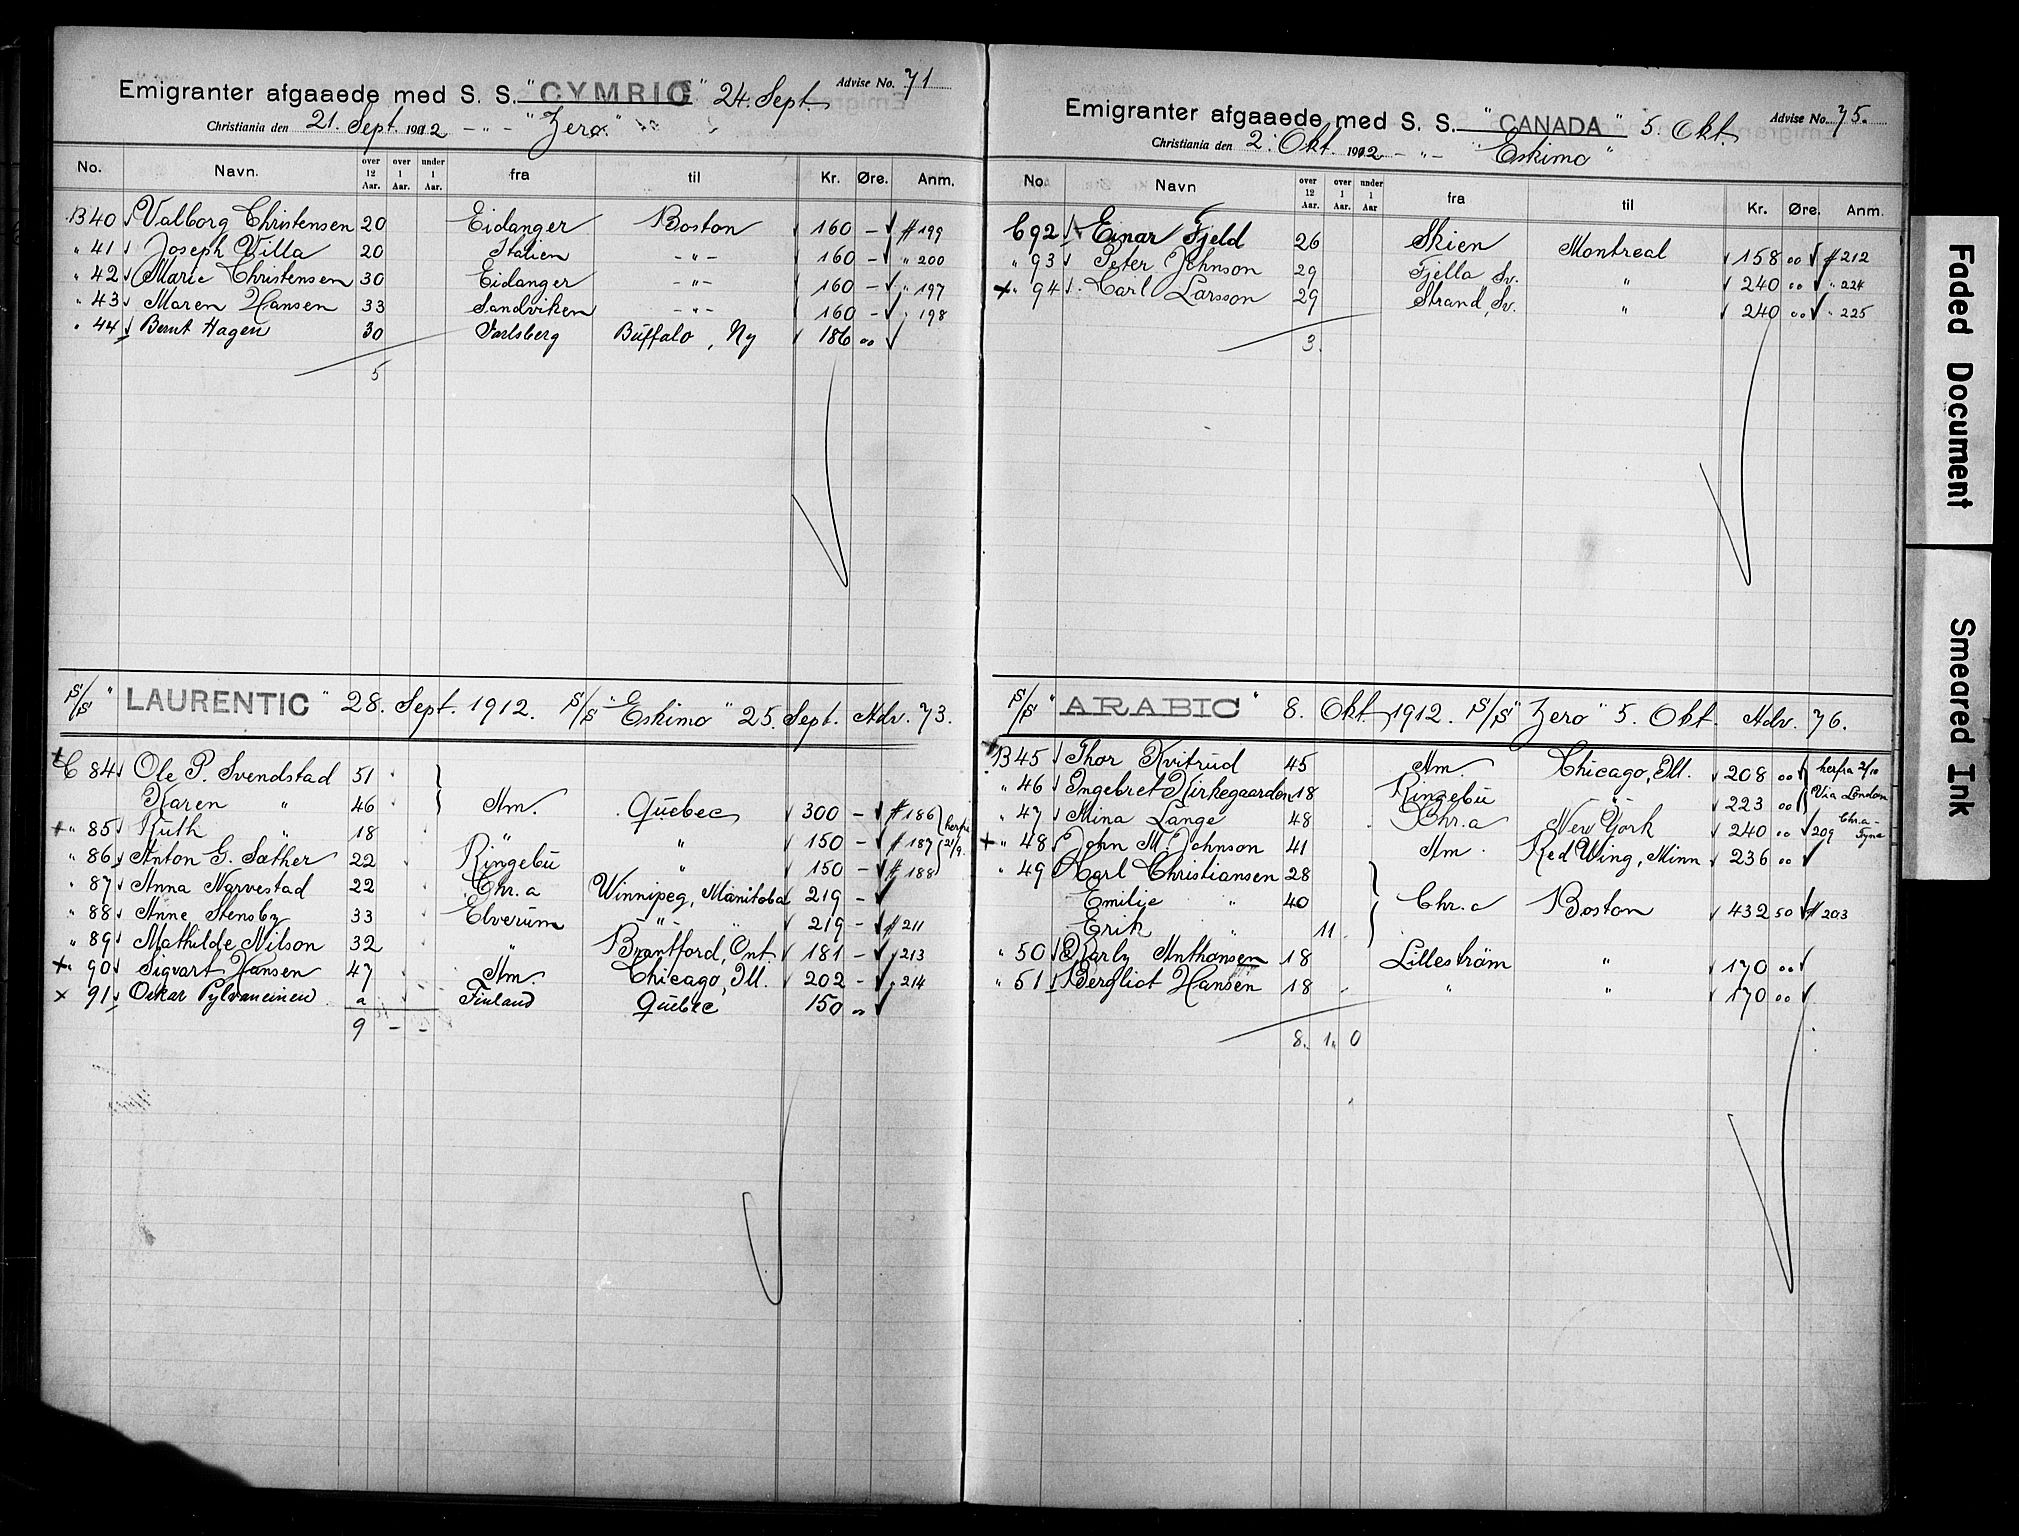 Emigranter afgaaede med S. S. "CYMRIC" 24. Sept. Advise No. 71
Christiania den 21. Sept. 1912 - " - "Zero"
No. Navn. over 12 Aar. over 1 Aar. under 1 Aar. fra til Kr. Øre. Anm.
B 40 Valborg Christensen 20 Eidanger Boston 160 - # 199
" 41 Joseph Villa 20 Italien - " - 160 - " 200
" 42 Marie Christensen 30 Eidanger - " - 160 - " 197
" 43 Maren Hansen 33 Sandviken - " - 160 - " 198
" 44 Bernt Hagen 30 Jarlsberg Buffalo, Ny 186 00
5
S/S "LAURENTIC" 28. Sept. 1912. S/S "Eskimo" 25. Sept. Adv. 73.
+ C 84 Ole P. Svendstad 51
Karen " 46 Am. Quebec 300 - # 186
+ " 85 Ruth " 18 " " 150 - # 187 herfra 21/9.
" 86 Anton G. Sæther 22 Ringebu " 150 - # 188
" 87 Anna Narvestad 22 Chr.a Winnipeg, Manitoba 219 -
" 88 Anne Stensby 33 Elverum " " 219 - # 211
" 89 Mathilde Nilson 32 " Brantford, Ont. 181 - " 213
+ " 90 Sigvart Hansen 47 Am. Chicago, Ill. 202 - " 214
x 91 Oskar Pylvaneinen a Finland Quebec 150 00
9 - -
Emigranter afgaaede med S. S. "CANADA" 5. Okt. Advise No. 75.
Christiania den 2. Okt. 1912 - " - "Eskimo"
No. Navn over 12 Aar. over 1 Aar. under 1 Aar fra til Kr. Øre. Anm.
C 92 Einar Fjeld 26 Skien Montreal 158 00 # 212
" 93 Peter Johnson 29 Fjella Sv. " 240 00 " 224
+ " 94 Carl Larsson 29 Strand, Sv. " 240 00 " 225
3.
S/S "ARABIC" 8. Okt. 1912. S/S "Zero" 5. Okt. Adv. 76.
+ B 45 Thor Kvitrud 45 Am. Chicago, Ill. 208 00 herfra 2/10
" 46 Ingebret Kirkegaarden 18 Ringebu " 223 00 Via London
" 47 Mina Lange 48 Chr.a New York 240 00 209 Chr.a - Tyne
+ " 48 John M. Johnson 41 Am. Red Wing, Minn 236 00
" 49 Karl Christiansen 28
Emilie " 40 Chr.a Boston 432 50 # 203
Erik " 11
" 50 Charly Anthonsen 18 Lillestrøm " 170 00
" 51 Bergliot Hansen 18 " " 170 00
8. 1. 0
Faded Document
Smeared Ink